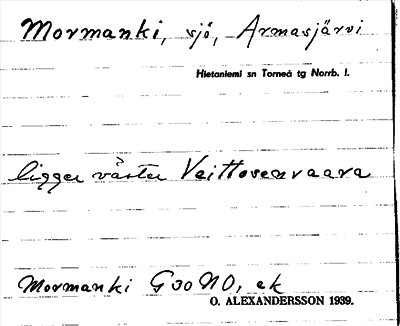 Mormanki, sjö, Armasjärvi
Hietaniemi sn Torneå tg Norrb. l.
ligger väster Veittosenvaara
Mormanki G 30 NO, ek
O. ALEXANDERSSON 1939.